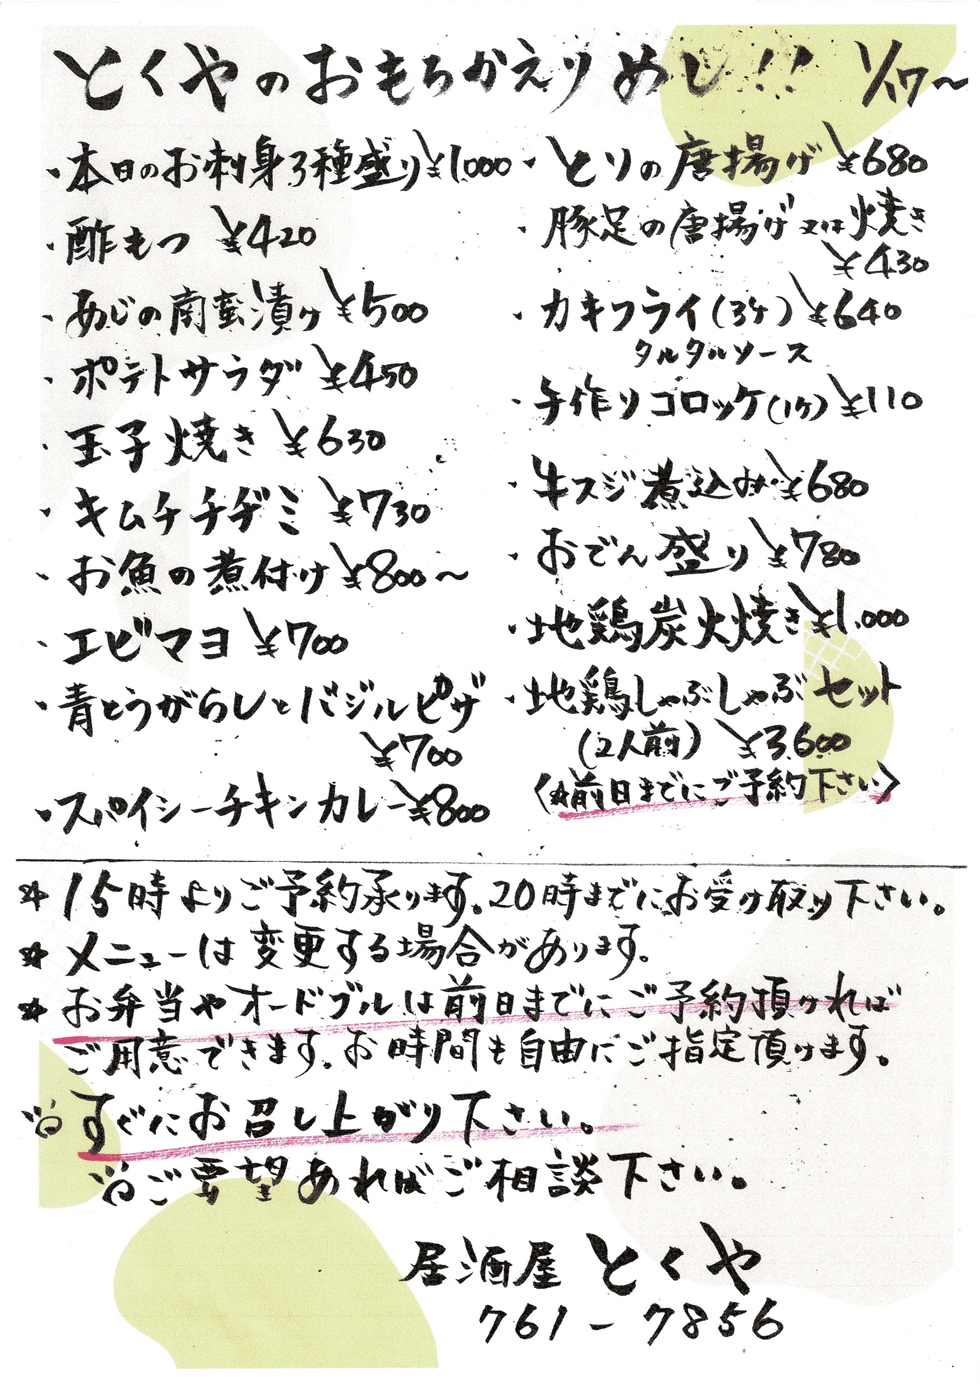 とくやのおもちかえりめし!! 1/17～
・本日のお刺身3種盛り ¥1000
・酢もつ ¥420
・あじの南蛮漬け ¥500
・ポテトサラダ ¥450
・玉子焼き ¥630
・キムチチヂミ ¥730
・お魚の煮付け ¥800～
・エビマヨ ¥700
・青とうがらしとバジルピザ
¥700
・スパイシーチキンカレー ¥800
・とりの唐揚げ ¥680
・豚足の唐揚げ又は焼き
¥430
・カキフライ(3ケ) ¥640
タルタルソース
・手作りコロッケ(1ケ) ¥110
・牛スジ煮込み ¥680
・おでん盛り ¥780
・地鶏炭火焼き ¥1,000
・地鶏しゃぶしゃぶセット
(2人前) ¥3,600
〈☆前日までにご予約下さい〉
☆15時よりご予約承ります。20時までにお受け取り下さい。
☆メニューは変更する場合があります。
☆お弁当やオードブルは前日までにご予約頂ければ
ご用意できます。お時間も自由にご指定頂けます。
すぐにお召し上がり下さい。
ご要望あればご相談下さい。
居酒屋 とくや
761-7856